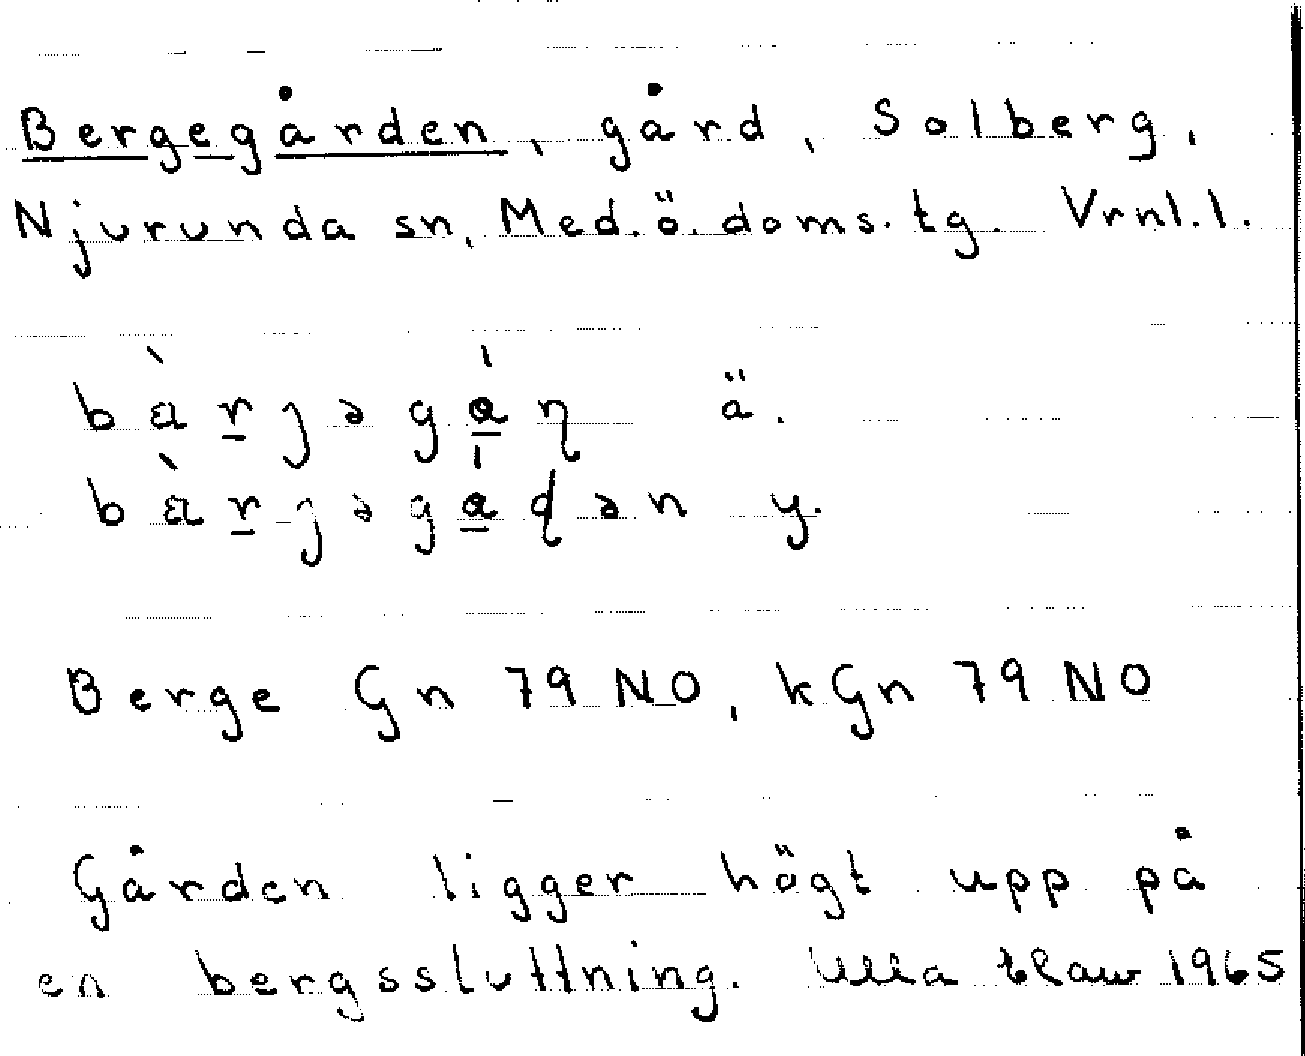 Bergegården, gård, Solberg,
Njurunda sn, Med. ö. doms. tg. Vrnl. l.
ä.
y.
Berge Gn 79 NO, kGn 79 NO
Gården ligger högt upp på
en bergssluttning. Ulla 1965